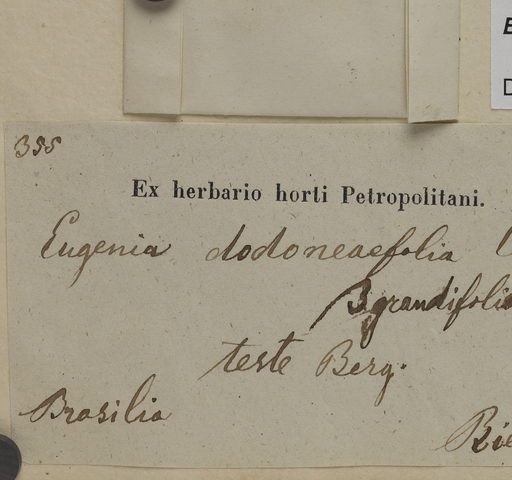 355
Ex herbario horti Petropolitani.
Eugenia dodoneaefolia
β grandifolia
teste Berg.
Brasilia